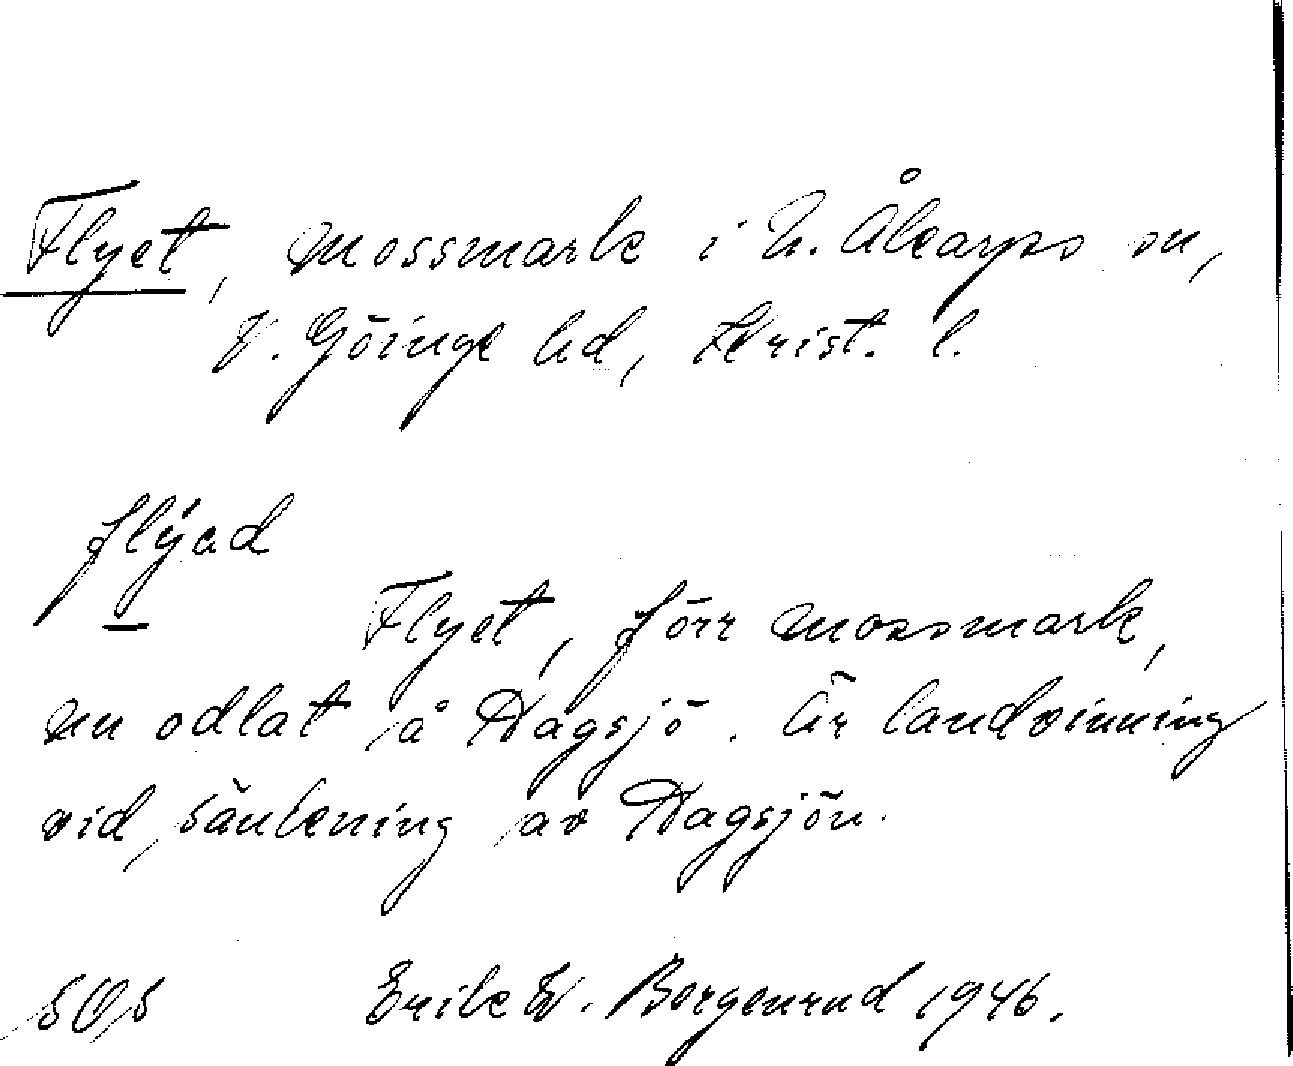 Flyet, mossmark i N. Åkarps sn,
V. Göinge hd, Krist. l.
flýad
Flyet, förr mossmark,
nu odlat å Hagsjö. Är landvinning
vid sänkning av Hagsjön.
SOS Erik W. Borgenrud 1946.